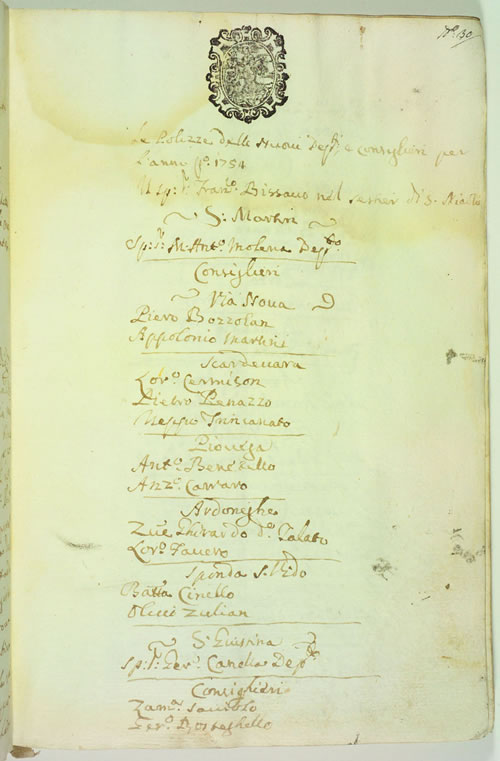 N.º 130
Le Polizze delli nuovi Dep.ti e Consiglieri per
l'anno p.º 1754
Il Sp: Sr. Fran.º Bissavo nel sentier di S.
S: Martin
Sp: Sr: M. Ant.º Molena Dep.to
Consiglieri
Via Nova
Piero Bozzolan
Appolonio Martini
Scardevara
Lor.º Cermison
Pietro Penazzo
Trincanato
Piovega
Ant.º Benetello
Anz.º Carraro
Ardonghe
Zuè Ghirardo d.º Talato
Lor.º Favero
Sponda S. Vido
Batta Cinello
Zulian
S: Giustina
Sp: Sr: Candia Dep.to
Consiglieri
Zam.a